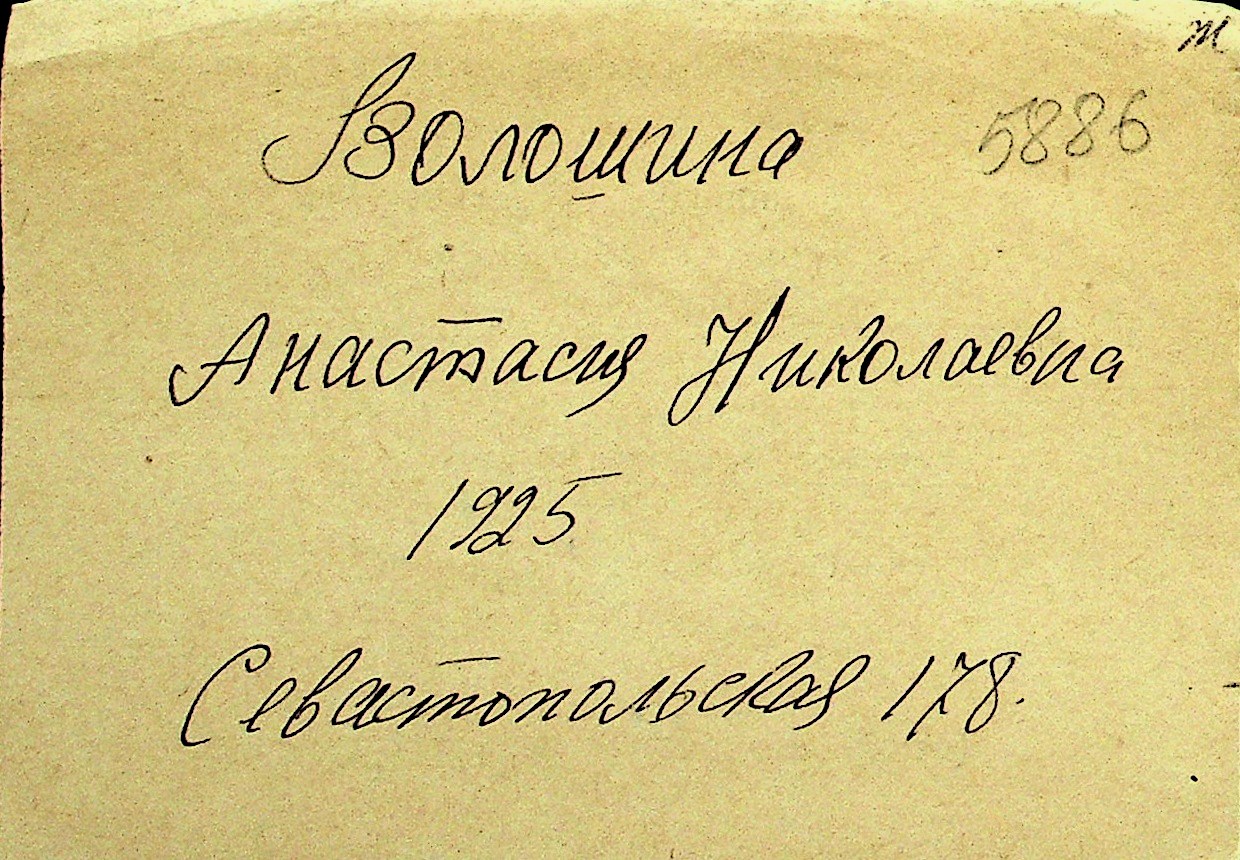 ж
Волошина 5886
Анастасия Николаевна
1925
Севастопольская 178.